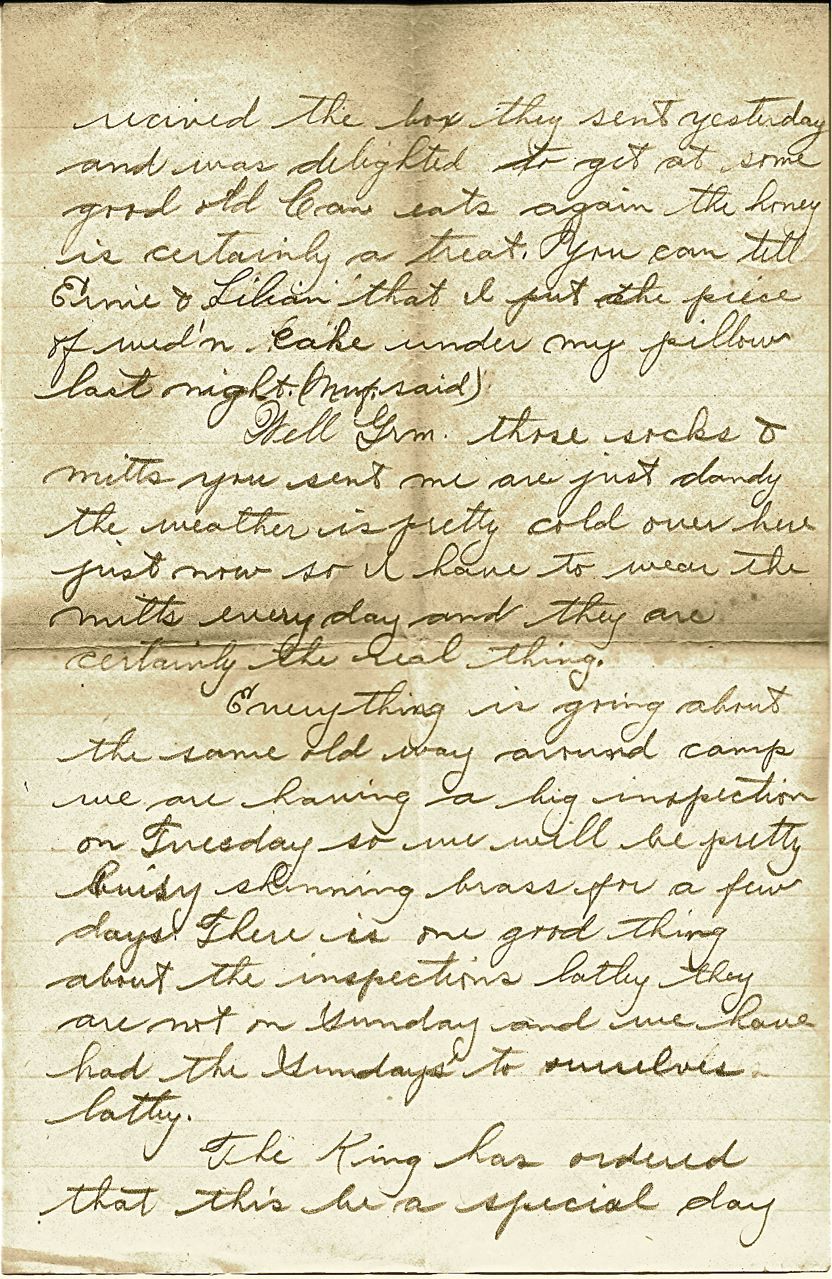 recived the box they sent yesterday
and was delighted to get at some
good old Can eats again the honey
is certainly a treat. You can tell
Ernie & Lilian that I put the piece
of wed'n cake under my pillow
last night. (said)
Well Grm. those socks &
mitts you sent me are just dandy
the weather is pretty cold over here
just now so I have to wear the
mitts every day and they are
certainly the real thing.
Everything is going about
the same old way around camp
we are having a big inspection
on Tuesday so we will be pretty
buisy shinning brass for a few
days. There is one good thing
about the inspections latly they
are not on Sunday and we have
had the Sundays to ourselves
latly.
The King has ordered
that this be a special day